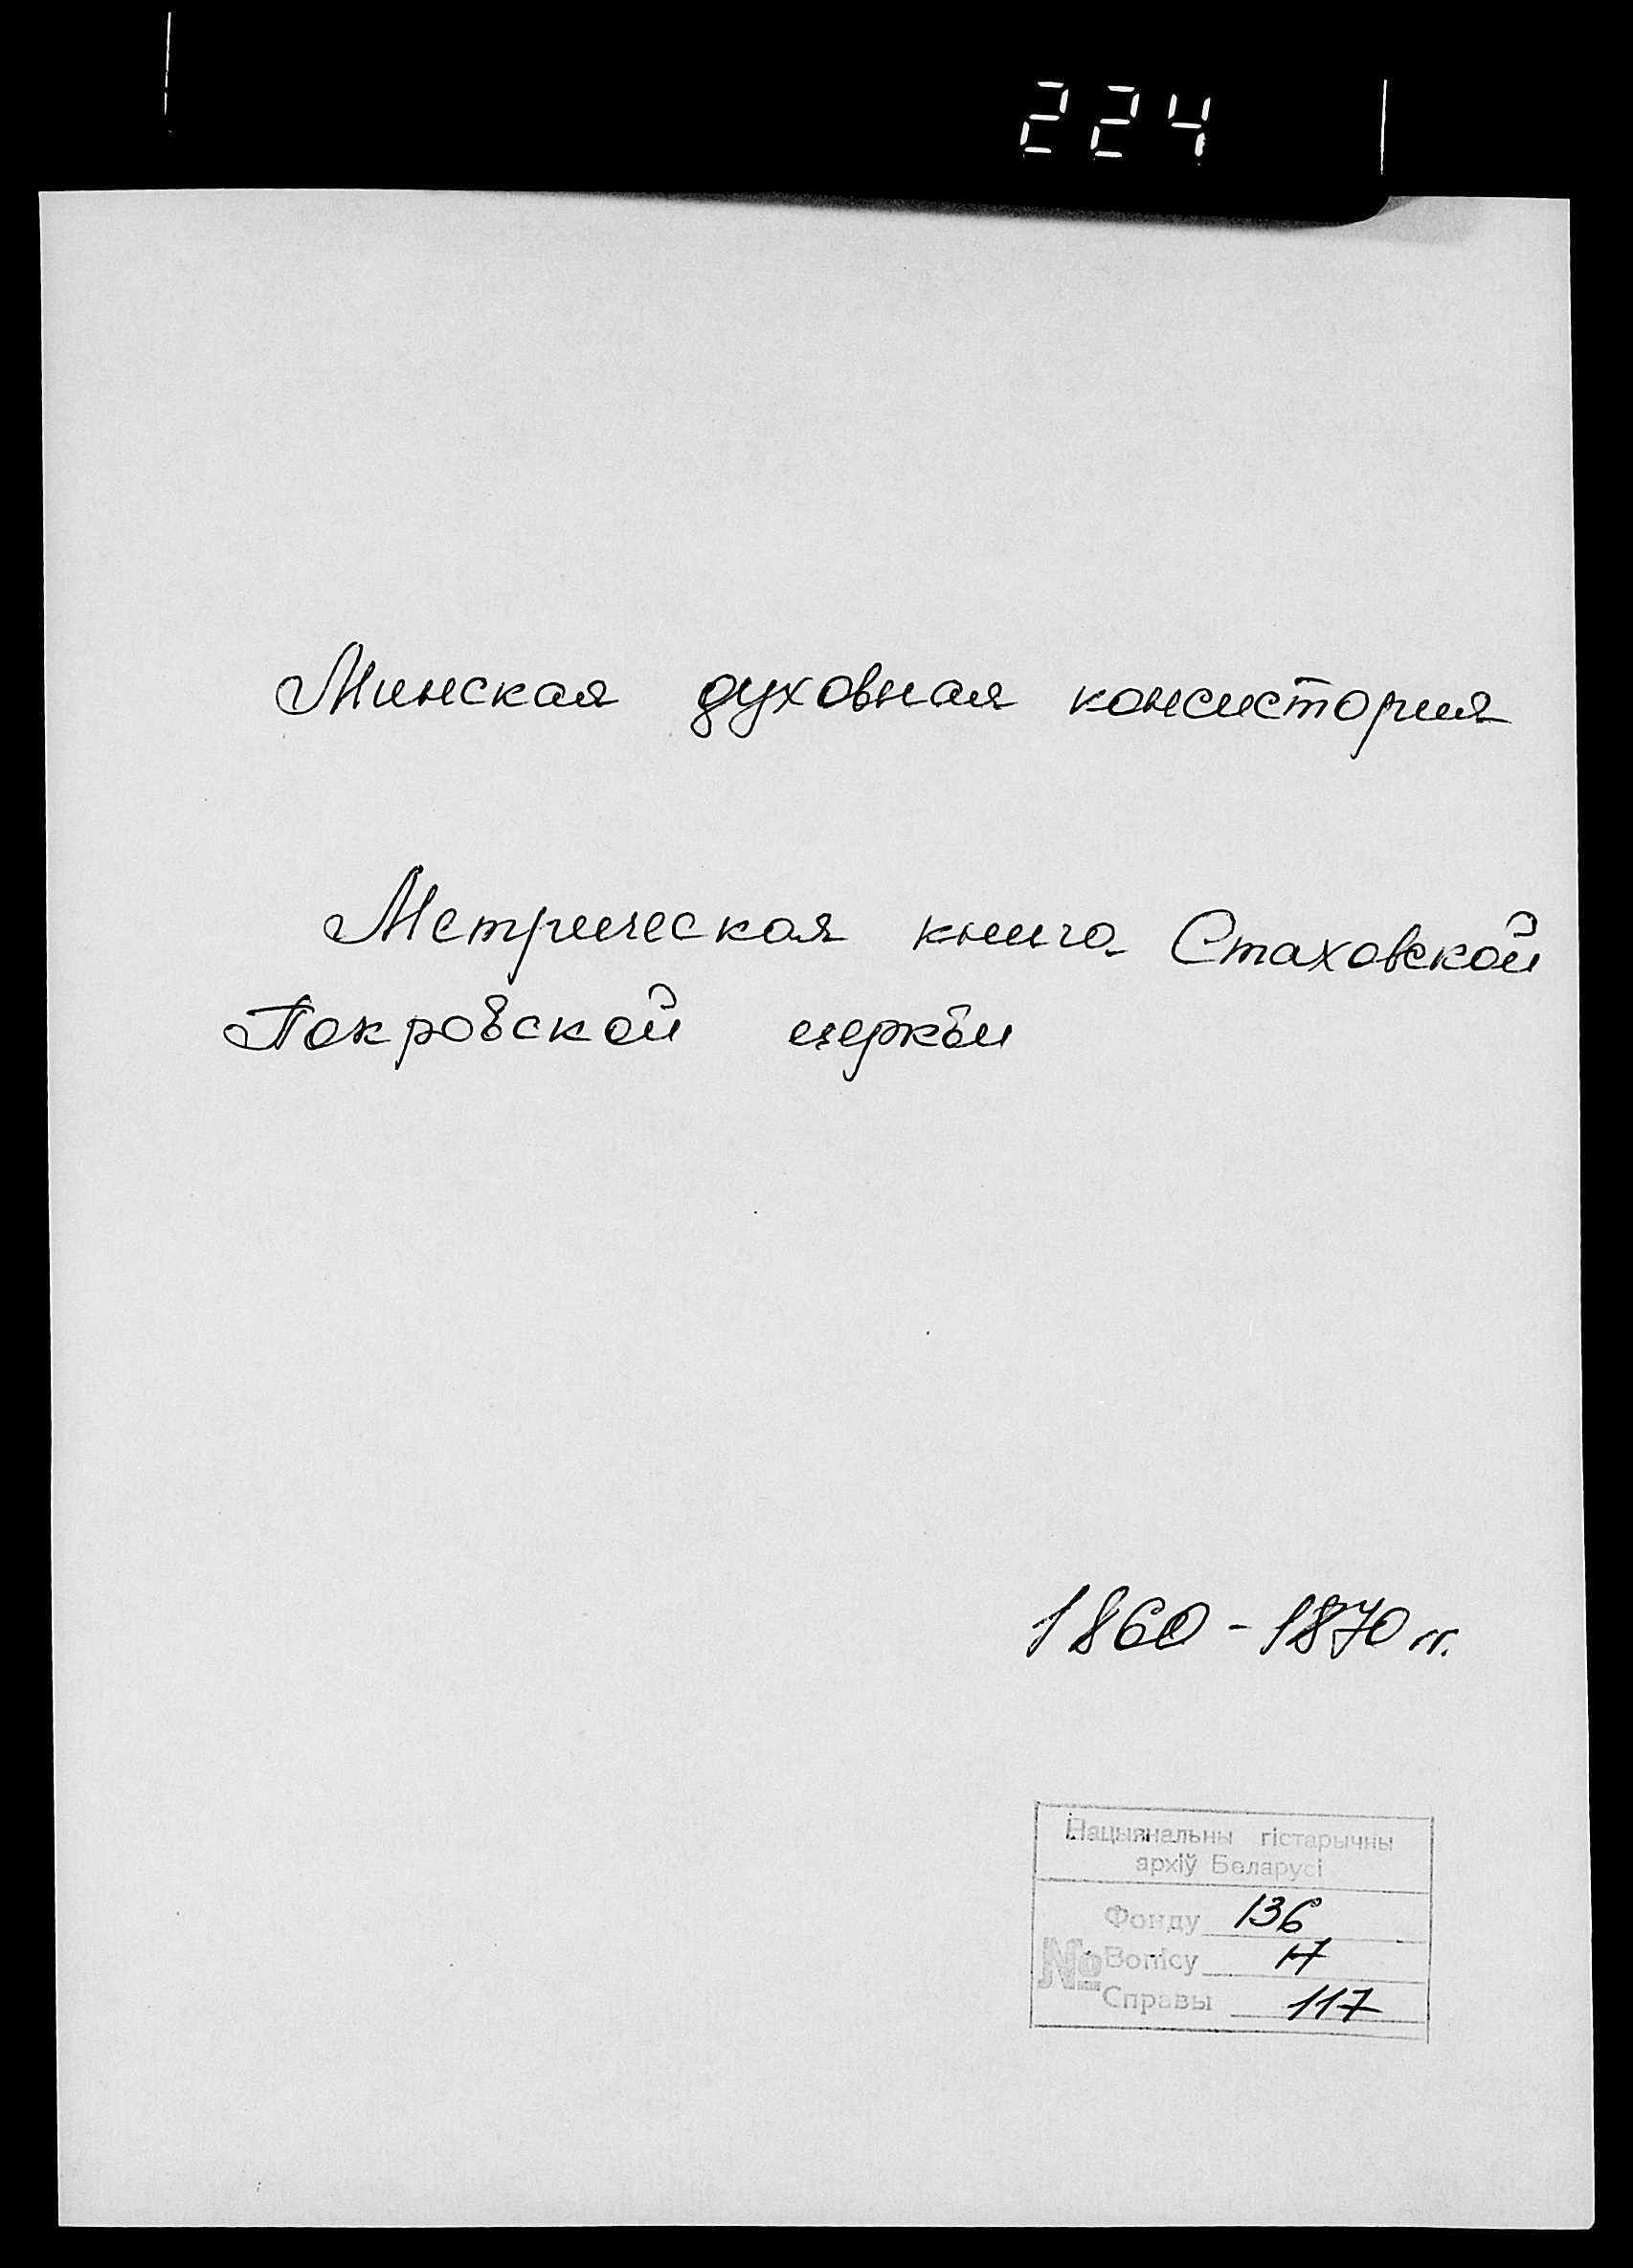 224
Минская духовная консистория
Метрическая книга Стаховской
Покровской церкви
1860-1870 гг.
Нацыянальны гістарычны
архіў Беларусі
Фонду 136
№ Вопісу 17
Справы 117